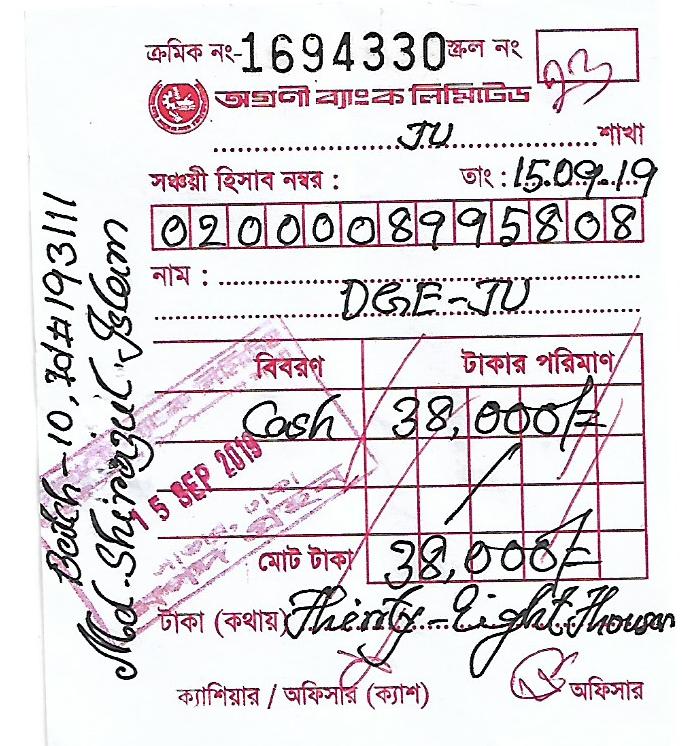 ক্রমিক নং-1694330 স্ক্রল নং
অগ্রনী ব্যাংক লিমিটেড
JU শাখা
সঞ্চয়ী হিসাব নম্বর : তাং : 15.09.19
0200008995808
নাম :
DGE-JU
বিবরণ টাকার পরিমাণ
Cash 38,000/=
15 SEP 2019
মোট টাকা 38,000/=
টাকা (কথায়) Thirty-Eight Thousan
ক্যাশিয়ার / অফিসার (ক্যাশ) অফিসার
Batch-10, Id#193111
Md. Shirajul Islam